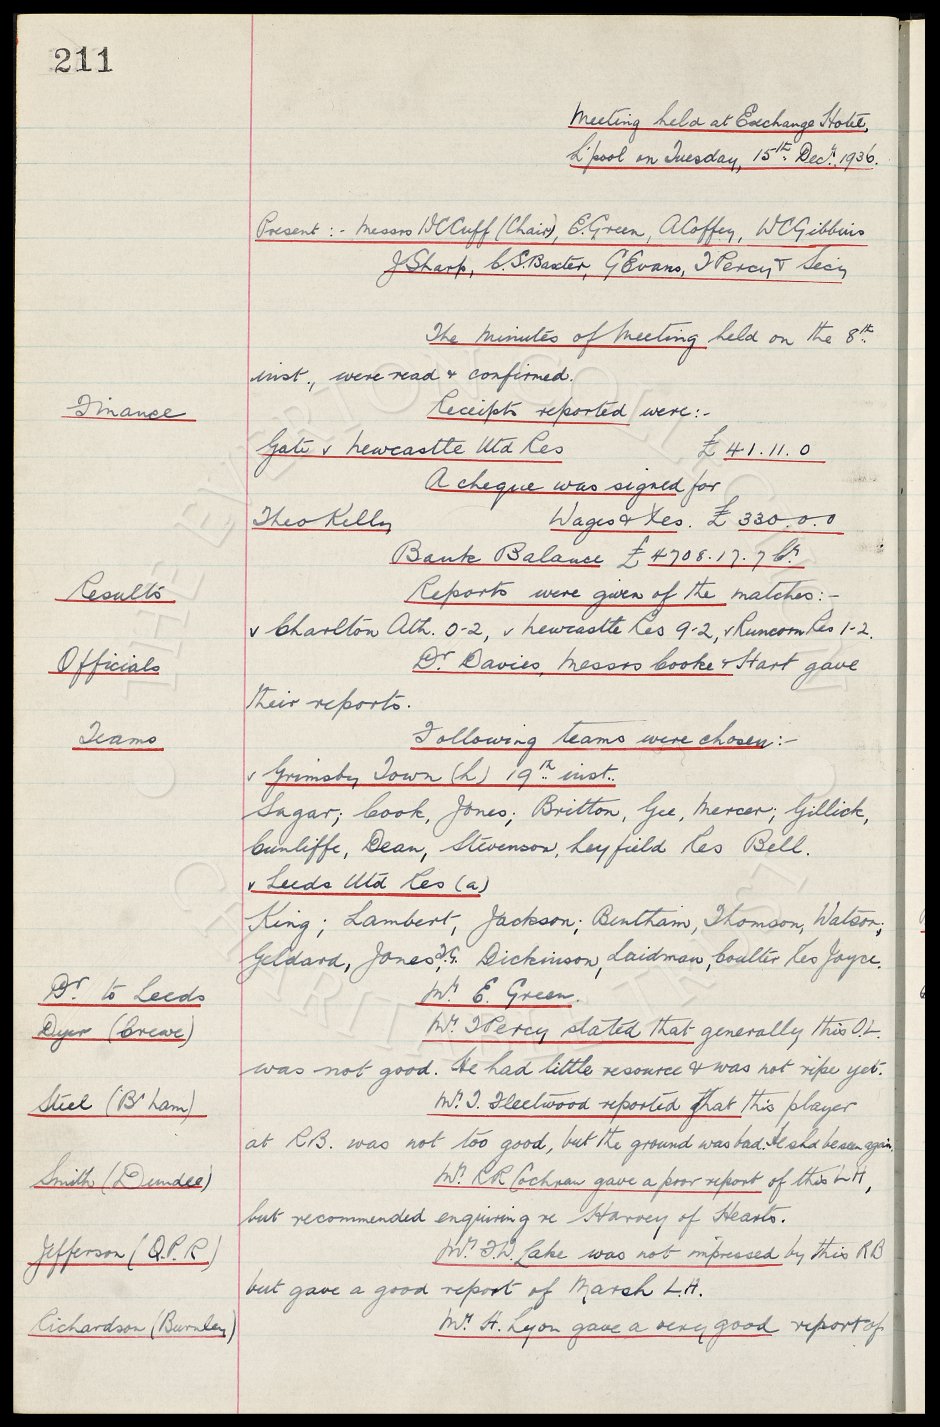 211
Meeting held at Exchange Hotel,
L'pool on Tuesday, 15th. Decr. 1936.
Present :- Messrs W C Cuff (Chair), E. Green, A Coffey, W C Gibbins
J Sharp, C. S. Baxter, G Evans, T Percy & Secy
The minutes of Meeting held on the 8th.
inst., were read & confirmed.
Finance Receipts reported were:-
Gate v Newcastle Utd Res £ 41. 11. 0
A cheque was signed for
Theo Kelly Wages & Xes. £ 330. 0. 0
Bank Balance £ 4708. 17. 7 Cr.
Results Reports were given of the matches:-
v Charlton Ath. 0-2, v Newcastle Res 9-2, v Runcorn Res 1-2.
Officials Dr. Davies, Messrs Cooke & Hart gave
their reports.
Teams Following teams were chosen:-
v Grimsby Town (h) 19th inst..
Sagar; Cook, Jones; Britton, Gee, Mercer; Gillick,
Cunliffe, Dean, Stevenson, Leyfield Res Bell.
v Leeds Utd Res (a)
King; Lambert, Jackson; Bentham, Thomson, Watson;
Geldard, Jones T.G. Dickinson, Laidman, Coulter Res Joyce.
Dr. to Leeds Mr. E. Green.
Dyer (Crewe) Mr. T Percy stated that generally this O.L.
was not good. He had little resource & was not ripe yet.
Steel (B'ham) Mr. T. Fleetwood reported that this player
at R.B. was not too good, but the ground was bad. He shd be seen again.
Smith (Dundee) Mr. R R Cochran gave a poor report of this L H,
but recommended enquiring re Harvey of Hearts.
Jefferson (Q. P. R) Mr. F. W. Lake was not impressed by this R B
but gave a good report of Marsh L.H.
Richardson (Burnley) Mr. H. Lyon gave a very good report of
THE EVERTON COLLECTION
CHARITABLE TRUST